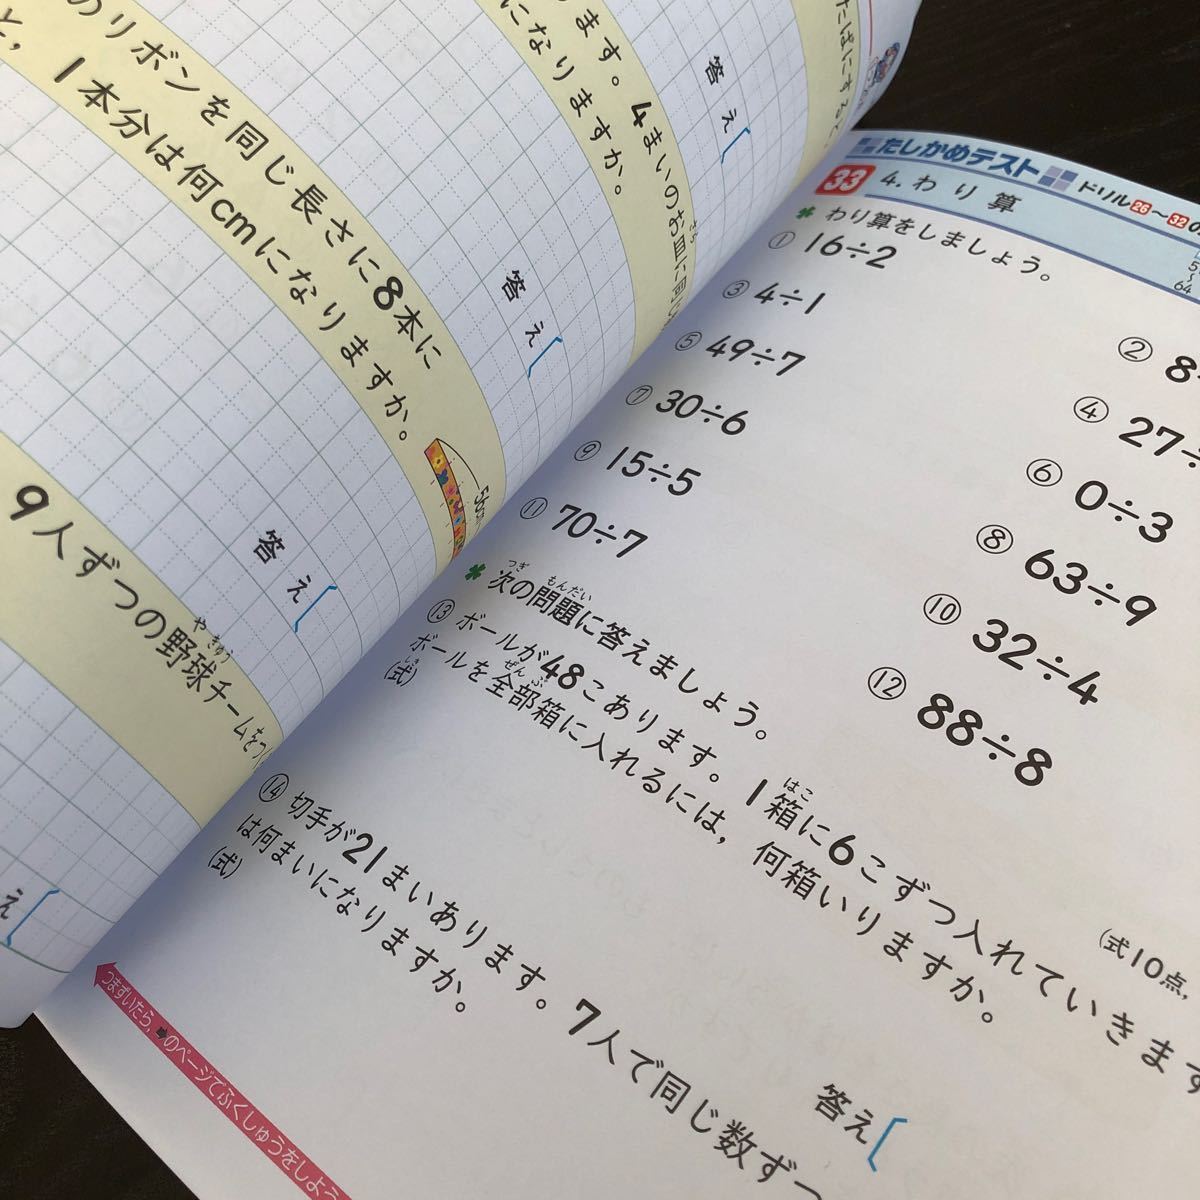 たばにすると
ます。4まいのお皿に同じ
さら
になりますか。
答え
のリボンを同じ長さに8本に
と,1本分は何cmになりますか。
56cm
答え
9人ずつの野球チームをつく
やきゅう
答え
え
たしかめテスト
ドリル26〜32の
33
4.わり算
5
〜
64
わり算をしましょう。
① 16÷2
② 8
③ 4÷1
④ 27÷
⑤ 49÷7
⑥ 0÷3
⑦ 30÷6
⑧ 63÷9
⑨ 15÷5
⑩ 32÷4
⑪ 70÷7
⑫ 88÷8
つぎ もんだい
次の問題に答えましょう。
(式10点,
はこ
⑬ ボールが48こあります。1箱に6こずつ入れていきます
ぜんぶ
ボールを全部箱に入れるには,何箱いりますか。
しき
(式)
答え
⑭ 切手が21まいあります。7人で同じ数ずつ
は何まいになりますか。
(式)
つまずいたら,のページでふくしゅうをしよう